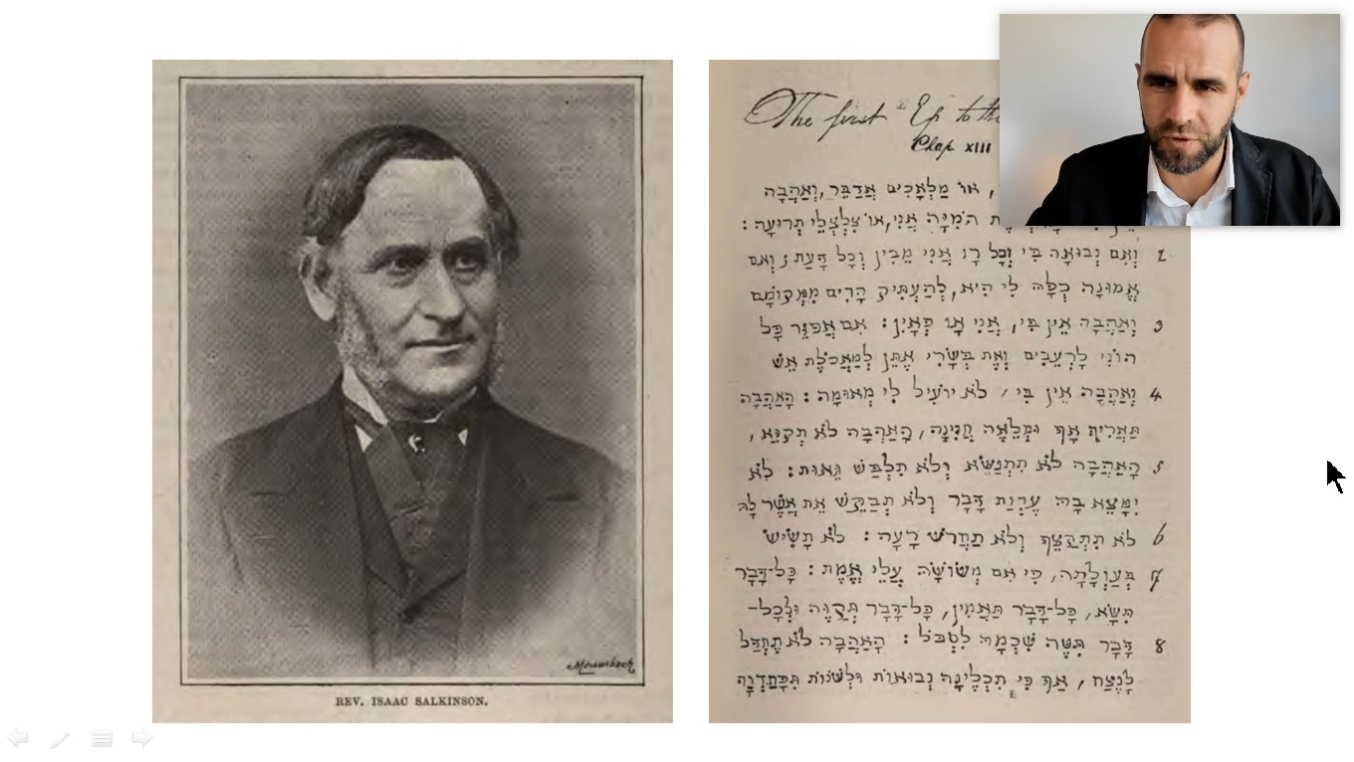 REV. ISAAC SALKINSON.
The first Ep to the
Chap XIII
או מַלְאָכִים אֲדַבֵּר, וְאַהֲבָה
הֹמִיָּה אֲנִי, אוֹ צִלְצְלֵי תְרוּעָה:
2 וְאִם נְבוּאָה בִּי וְכָל רָז אֲנִי מֵבִין וְכָל דַּעַת וְאִם
אֱמוּנָה כְלָּהּ לִי הִיא, לְהַעְתִּיק הָרִים מִמְּקוֹמָם
3 וְאַהֲבָה אֵין בִּי, אֲנִי אָז כְּאָיִן: אִם אֲפַזֵּר כָּל
הוֹנִי לָרְעֵבִים וְאֶת בְּשָׂרִי אֶתֵּן לְמַאֲכֹלֶת אֵשׁ
4 וְאַהֲבָה אֵין בִּי, לֹא יֹעִיל לִי מְאוּמָה: הָאַהֲבָה
תַּאֲרִיךְ אָף וּמְלֵאָה חֲנִינָה, הָאַהֲבָה לֹא תְקַנֵּא,
5 הָאַהֲבָה לֹא תִתְנַשֵּׂא וְלֹא תִלְבַּשׁ גֵּאוּת: לֹא
יִמָּצֵא בָהּ עֶרְוַת דָּבָר וְלֹא תְבַקֵּשׁ אֵת אֲשֶׁר לָהּ
6 לֹא תִתְקַצֵּף וְלֹא תַחֲרֹשׁ רָעָה: לֹא תָשִׂישׂ
7 בְּעַוְלָתָה, כִּי אִם מְשׂוֹשָׂהּ עֲלֵי אֱמֶת: כָּל-דָּבָר
תִּשָּׂא, כָּל-דָּבָר תַּאֲמִין, כָּל-דָּבָר תְּקַוֶּה וּלְכָל-
8 דָּבָר תִּטֶּה שִׁכְמָהּ לִסְבֹּל: הָאַהֲבָה לֹא תֶחְדַּל
לָנֶצַח, אַף כִּי תִכְלֶינָה נְבוּאוֹת וּלְשׁוֹנוֹת